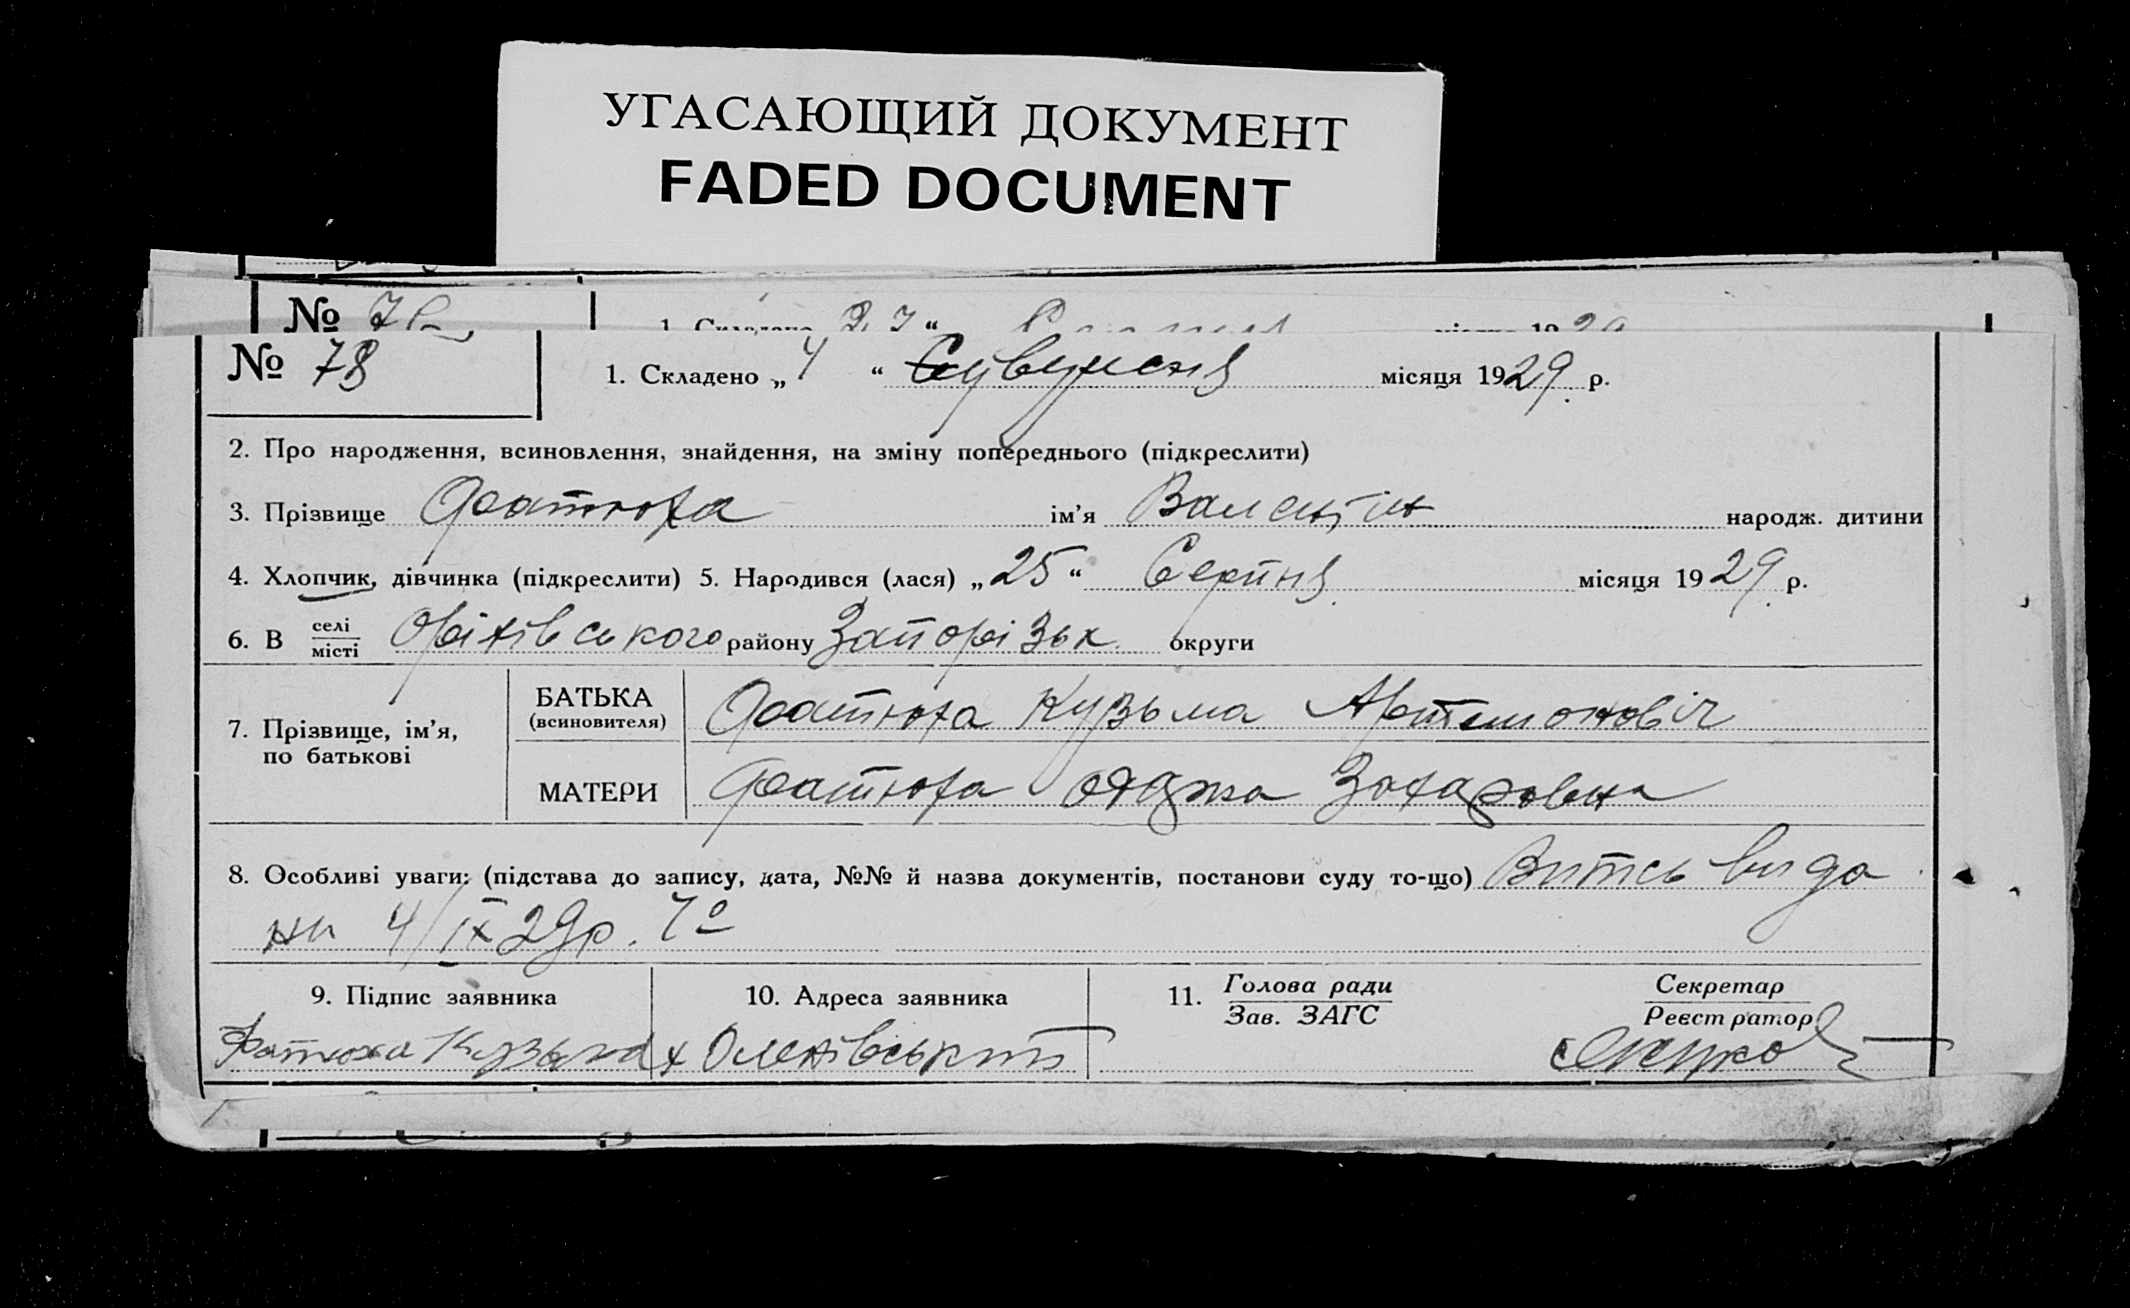 УГАСАЮЩИЙ ДОКУМЕНТ
FADED DOCUMENT
№
№ 78
1. Складено „ 4 “ місяця 1929 р.
2. Про народження, всиновлення, знайдення, на зміну попереднього (підкреслити)
3. Прізвище Фатюха ім'я Валентін народж. дитини
4. Хлопчик, дівчинка (підкреслити) 5. Народився (лася) „ 25 “ Серпня місяця 1929 р.
6. В селі місті Оріхівського району Запорізьк. округи
7. Прізвище, ім'я, по батькові
БАТЬКА (всиновителя) Фатюха Кузьма Артемоновіч
МАТЕРИ Фатюха Захаровна
8. Особливі уваги: (підстава до запису, дата, №№ й назва документів, постанови суду то-що) Витсь вида
ни 4/IX 29р.
9. Підпис заявника 10. Адреса заявника 11. Голова ради Зав. ЗАГС Секретар Реєстратор
Фатюха Кузьма